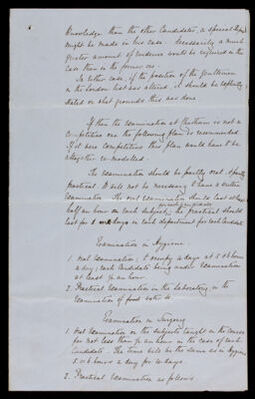 knowledge than the other Candidates, a special Report
might be made in his case. Necessarily a much
greater amount of evidence would be required in the
case than in the former one.
In either case if the position of the gentlemen
in the London list was altered, it should be explicitly
stated on what grounds this was done
If then the examination at Chatham is not a
competitive one the following plan is recommended.
If it were competitive this plan would have to be
altogether re-modelled.
The examination should be partly oral & partly
practical. It will not be necessary to have a written
Examination. The oral examination should last at least
half an hour on each subject, the practical should
last for days in each department for each candidate
Examination in Hygiene.
1. Oral Examination; to occupy days at 5 or 6 hours
a day; each Candidate being under examination
at least ½ an hour.
2. Practical Examination in the Laboratory in the
Examination of food water &c
Examination in Surgery
1. Oral Examination on the subjects taught in the Course
for not less than ½ an hour in the case of each
Candidate. The time will be the same as in Hygiene
5 or 6 hours a day for days.
2. Practical Examination as follows